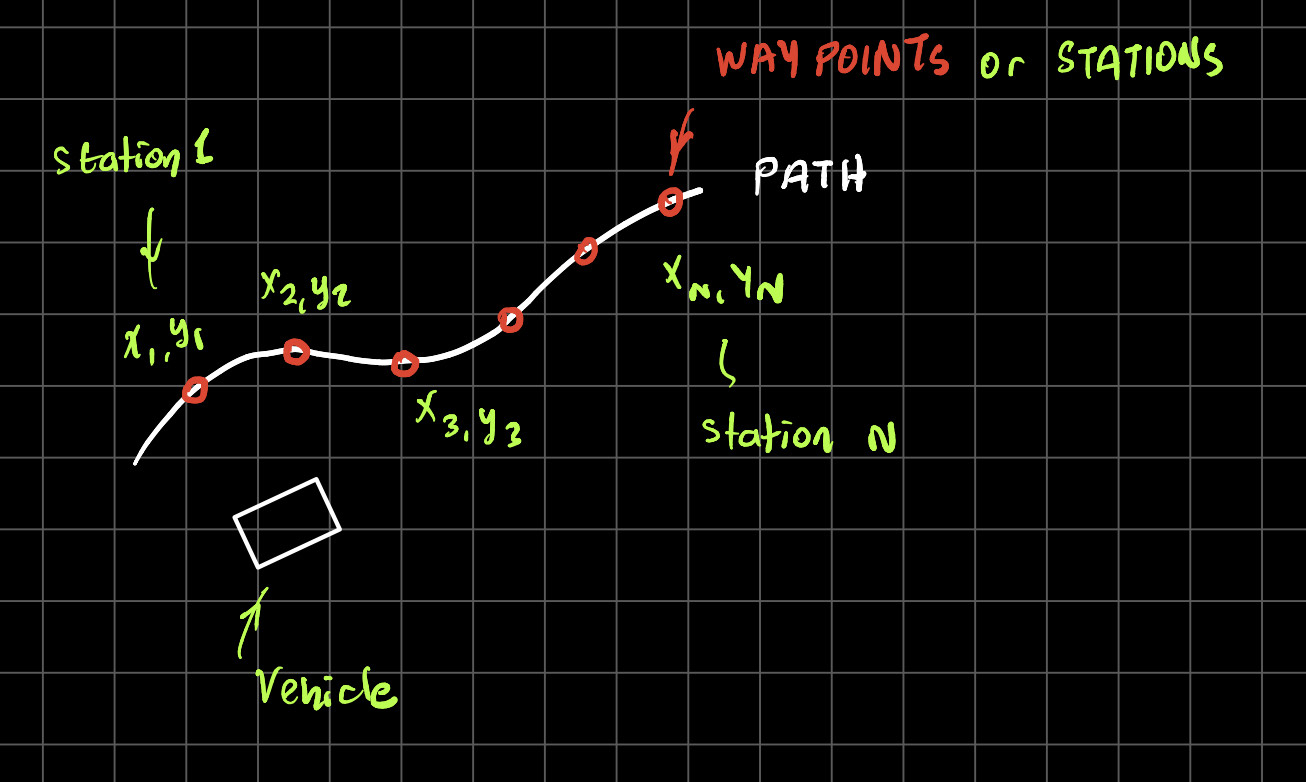 WAY POINTS or STATIONS
station 1
PATH
x2,y2
xN, yN
x1,y1
x3,y3
station N
Vehicle